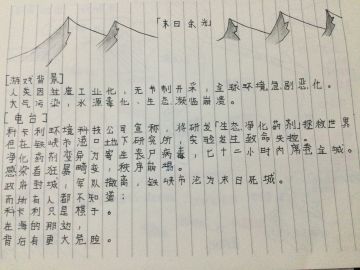 「末日余光」
[游戏背景]
人类因过度工业化,无节制开采,全球环境急剧恶化。
大气污染,水源毒化、生态濒临崩溃。
[电台]
科卡利环境科技公司宣称,将研发「生态净化药剂」拯救世界
但在铁峡市港口地下研究所,实验发生致命失控。
净化药剂变异为寄生丧尸病毒,七十二小时内席卷全城。
感染者狂暴畸变,秩序崩塌。
政府封城,军队撤离,铁峡市沦为末日死城。
而所有人都不知道:
科卡利只是棋子。
在海的那边,
背后有更大危险。